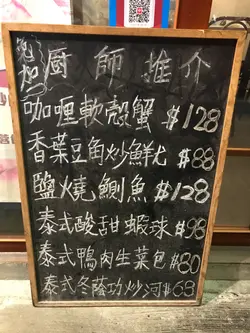 廚師推介
咖喱軟殼蟹 $128
香葉豆角炒鮮尤 $88
鹽燒鯽魚 $128
泰式酸甜蝦球 $98
泰式鴨肉生菜包 $80
泰式冬蔭功炒河 $68